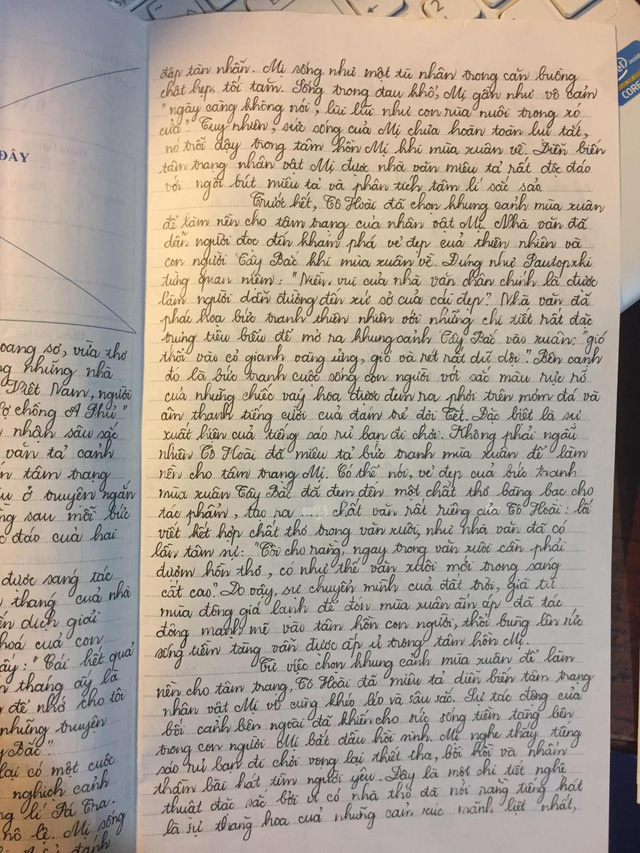 intel
CORE
ĐÂY
oang sơ, vừa thơ
nhưng nhà
Việt Nam, người
Vợ chồng A Phủ"
nhân sâu sắc
văn tả cảnh
tâm trạng
ở truyện ngắn
sau mỗi bức
đáo của hai
được sáng tác
tháng của nhà
đến dịch giải
hoá của con
ấy: "Cái kết quả
tháng ấy là
để nhớ cho tôi
những truyện
Bắc".
lại có một cuộc
nghịch cảnh
lí Pá Tra.
nô lệ. Mị sống
đập tàn nhẫn. Mị sống như một tù nhân trong căn buồng
chật hẹp, tối tăm. Sống trong đau khổ, Mị gần như vô cảm
"ngày càng không nói, lùi lũi như con rùa nuôi trong xó
cửa". Tuy nhiên, sức sống của Mị chưa hoàn toàn lụi tắt,
nó trỗi dậy trong tâm hồn Mị khi mùa xuân về. Diễn biến
tâm trạng nhân vật Mị được nhà văn miêu tả rất độc đáo
với ngòi bút miêu tả và phân tích tâm lí sắc sảo.
Trước hết, Tô Hoài đã chọn khung cảnh mùa xuân
để làm nền cho tâm trạng của nhân vật Mị. Nhà văn đã
dẫn người đọc đến khám phá vẻ đẹp của thiên nhiên và
con người Tây Bắc khi mùa xuân về. Đúng như Pautopxki
từng quan niệm: "Niềm vui của nhà văn chân chính là được
làm người dẫn đường đến xứ sở của cái đẹp". Nhà văn đã
phác họa bức tranh thiên nhiên với những chi tiết rất đặc
trưng tiêu biểu để mở ra khung cảnh Tây Bắc vào xuân: "gió
thổi vào cỏ gianh vàng ửng, gió và rét rất dữ dội". Bên cạnh
đó là bức tranh cuộc sống con người với sắc màu rực rỡ
của những chiếc váy hoa được đem ra phơi trên mỏm đá và
âm thanh tiếng cười của đám trẻ đón Tết. Đặc biệt là sự
xuất hiện của tiếng sáo rủ bạn đi chơi. Không phải ngẫu
nhiên Tô Hoài đã miêu tả bức tranh mùa xuân để làm
nền cho tâm trạng Mị. Có thể nói, vẻ đẹp của bức tranh
mùa xuân Tây Bắc đã đem đến một chất thơ bảng bạc cho
tác phẩm, tạo ra chất văn rất riêng của Tô Hoài: lối
viết kết hợp chất thơ trong văn xuôi, như nhà văn đã có
lần tâm sự: "Tôi cho rằng, ngay trong văn xuôi cần phải
đượm hồn thơ, có như thế văn xuôi mới trong sáng
cất cao". Do vậy, sự chuyển mình của đất trời, giã từ
mùa đông giá lạnh để đón mùa xuân ấm áp đã tác
động mạnh mẽ vào tâm hồn con người, thổi bùng lên sức
sống tiềm tàng vẫn được ấp ủ trong tâm hồn Mị.
Từ việc chọn khung cảnh mùa xuân để làm
nền cho tâm trạng, Tô Hoài đã miêu tả diễn biến tâm trạng
nhân vật Mị vô cùng khéo léo và sâu sắc. Sự tác động của
bối cảnh bên ngoài đã khiến cho sức sống tiềm tàng bên
trong con người Mị bắt đầu hồi sinh. Mị nghe thấy tiếng
sáo rủ bạn đi chơi vọng lại thiết tha, bồi hồi và nhẩm
thầm bài hát tìm người yêu. Đây là một chi tiết nghệ
thuật đặc sắc bởi vì có nhà thơ đã nói rằng tiếng hát
là sự thăng hoa của những cảm xúc mãnh liệt nhất,